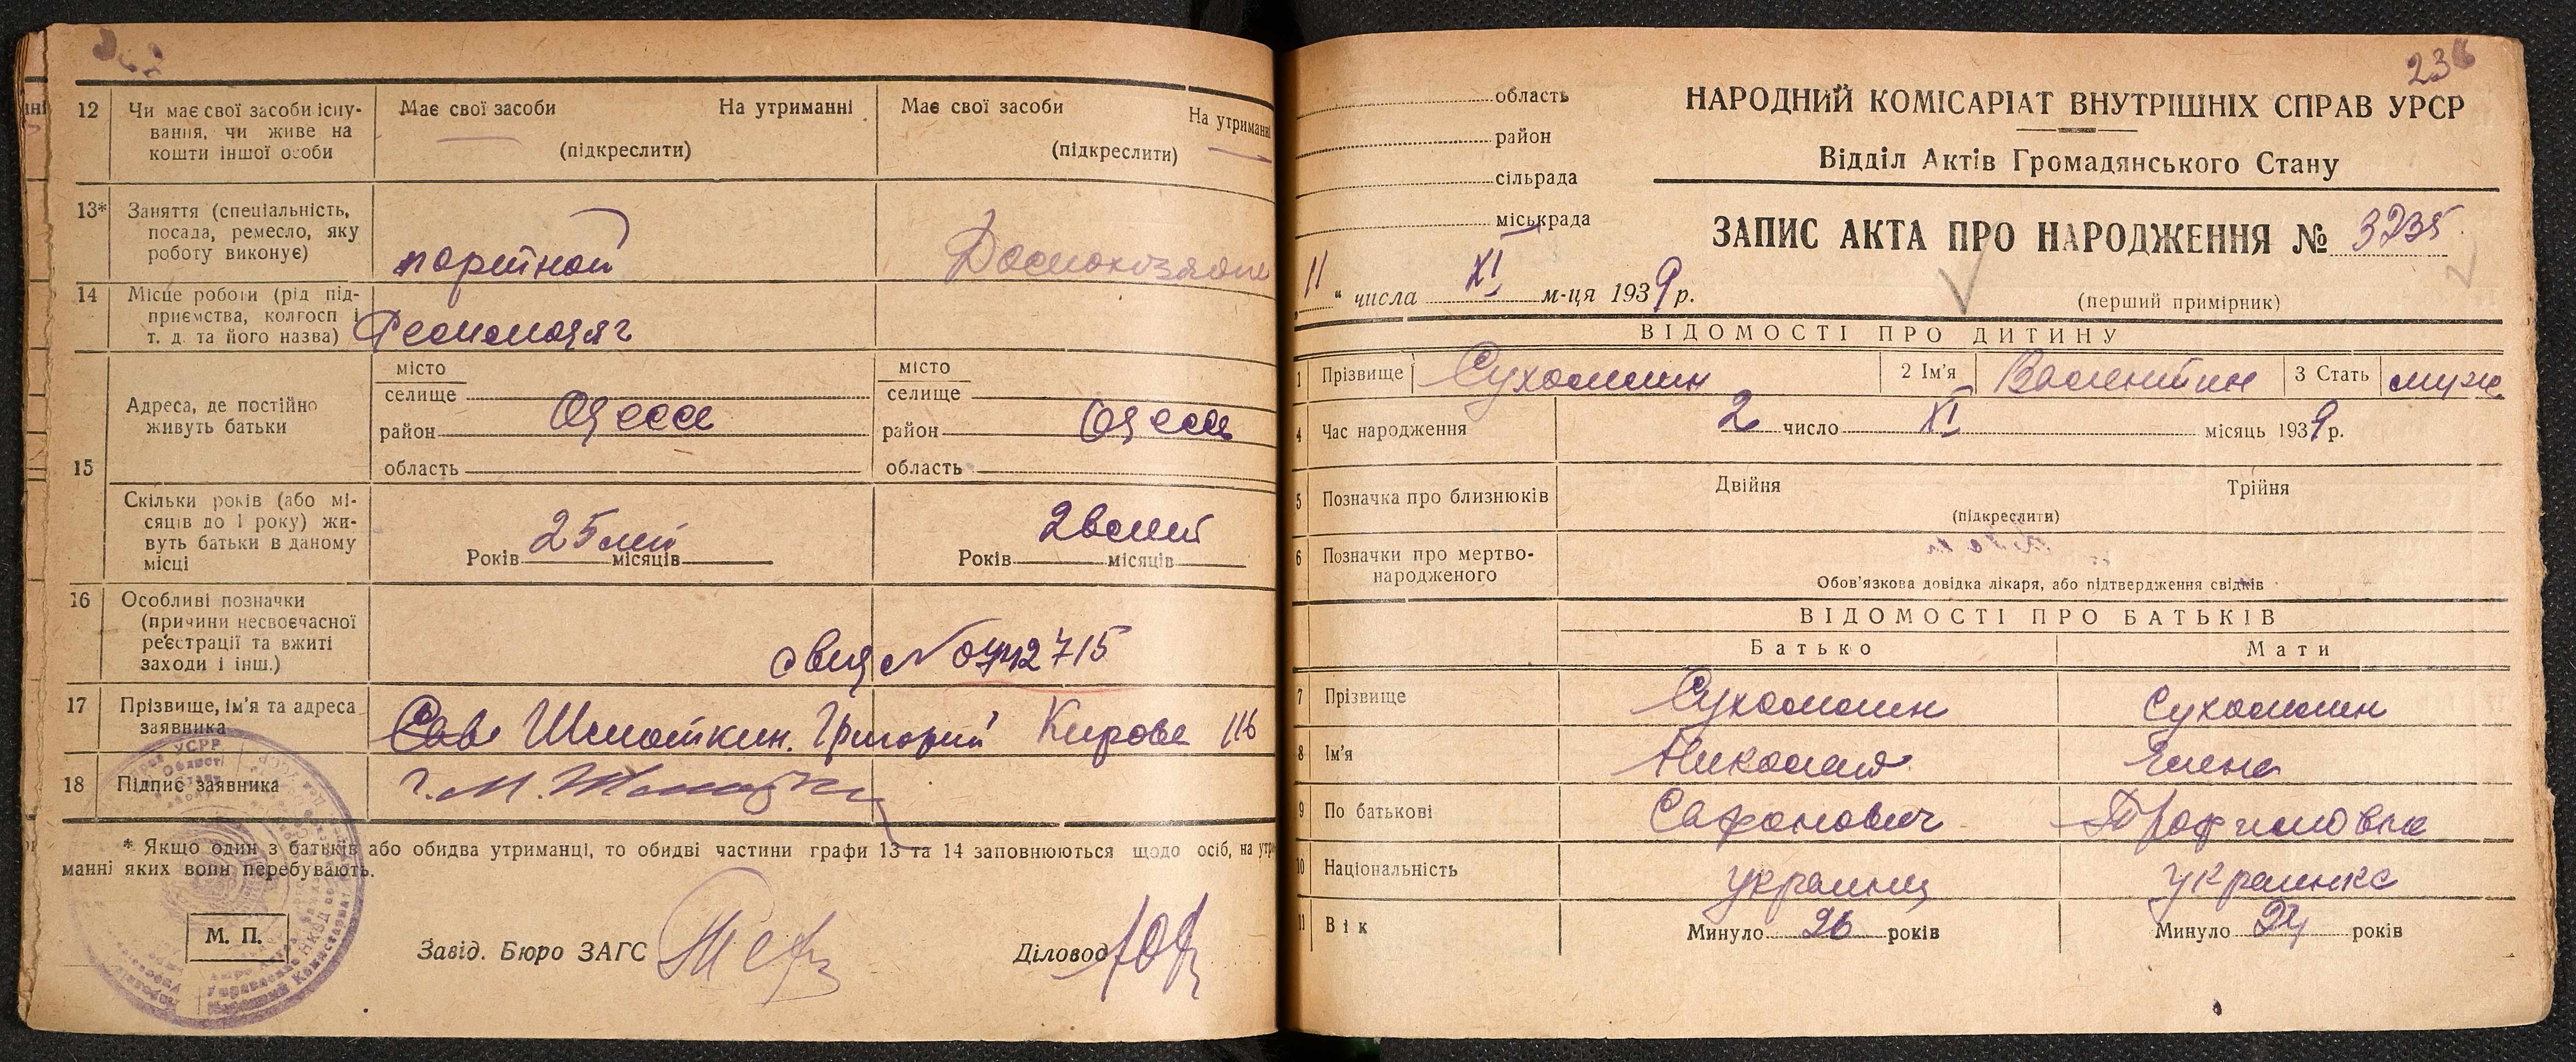 12 Чи має свої засоби існу-
вання, чи живе на
кошти іншої особи
Має свої засоби На утриманні
(підкреслити)
Має свої засоби На утриманні
(підкреслити)
13* Заняття (спеціальність,
посада, ремесло, яку
роботу виконує)
портной
Домохозяйк
14 Місце роботи (рід під-
приємства, колгосп і
т. д. та його назва)
15 Адреса, де постійно
живуть батьки
місто
селище
район Одесса
область
місто
селище
район Одесса
область
Скільки років (або мі-
сяців до 1 року) жи-
вуть батьки в даному
місці
Років 25 лет місяців
Років місяців
16 Особливі позначки
(причини несвоєчасної
реєстрації та вжиті
заходи і інш.)
свид №
17 Прізвище, ім'я та адреса
заявника
Шмоткин. Григорий Кирова 116
18 Підпис заявника
* Якщо один з батьків або обидва утриманці, то обидві частини графи 13 та 14 заповнюються щодо осіб, на утри-
манні яких вони перебувають.
М. П.
Завід. Бюро ЗАГС
Діловод
236
область
район
сільрада
міськрада
НАРОДНИЙ КОМІСАРІАТ ВНУТРІШНІХ СПРАВ УРСР
Відділ Актів Громадянського Стану
ЗАПИС АКТА ПРО НАРОДЖЕННЯ № 3235
„ 11 " числа XI м-ця 1939 р.
(перший примірник)
ВІДОМОСТІ ПРО ДИТИНУ
1 Прізвище Сухомлин 2 Ім'я Валентин 3 Стать муж
4 Час народження 2 число XI місяць 1939 р.
5 Позначка про близнюків Двійня Трійня
(підкреслити)
6 Позначки про мертво-
народженого
Обов'язкова довідка лікаря, або підтвердження свідків
ВІДОМОСТІ ПРО БАТЬКІВ
Батько Мати
7 Прізвище Сухомлин Сухомлин
8 Ім'я Николай Елена
9 По батькові Сафонович Трофимовна
10 Національність украинец украинка
11 Вік Минуло 26 років Минуло 24 років